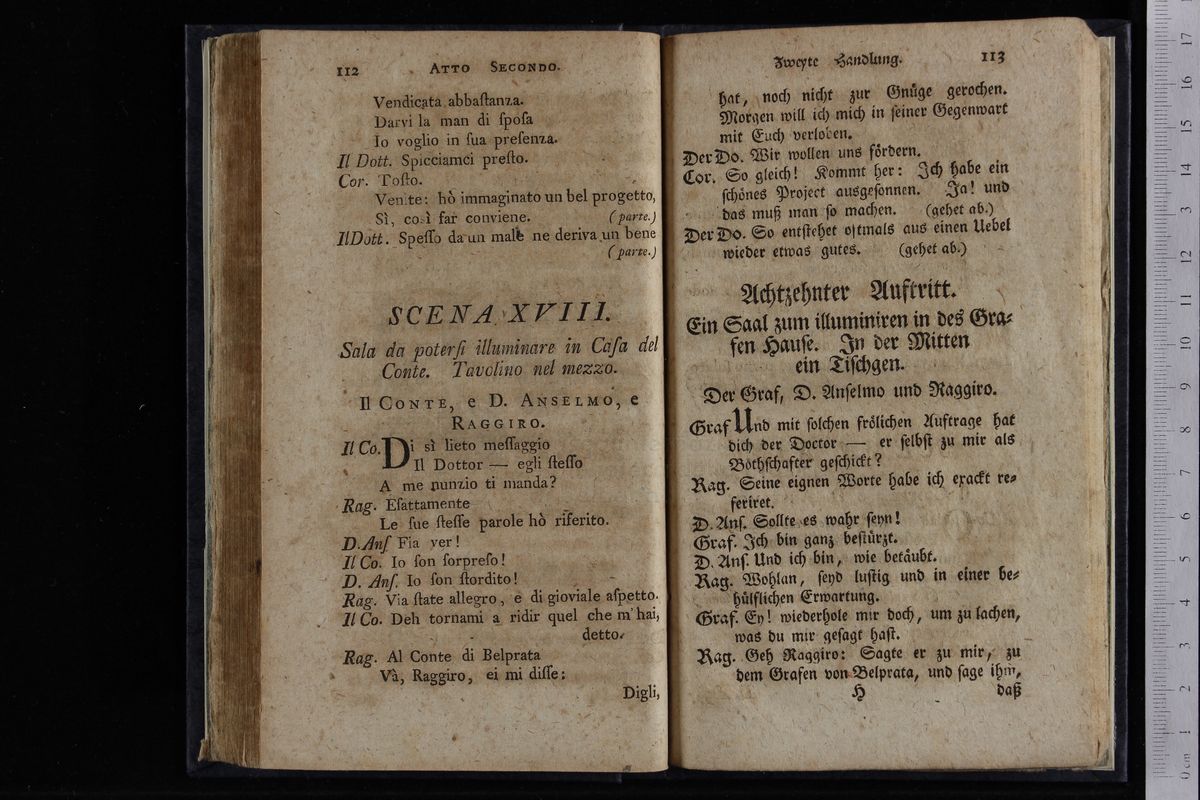 112 ATTO SECONDO.
Vendicata abbaſtanza.
Darvi la man di ſpoſa
Io voglio in ſua preſenza.
Il Dott. Spicciamci preſto.
Cor. Toſto.
Venite: hò immaginato un bel progetto,
Sì, così far conviene. (parte.)
Il Dott. Speſſo da un male ne deriva un bene
(parte.)
SCENA XVIII.
Sala da poterſi illuminare in Caſa del
Conte. Tavolino nel mezzo.
Il CONTE, e D. ANSELMO, e
RAGGIRO.
Il Co. Di sì lieto meſſaggio
Il Dottor — egli ſteſſo
A me nunzio ti manda?
Rag. Eſattamente
Le ſue ſteſſe parole hò riferito.
D. Anſ. Fia ver!
Il Co. Io ſon ſorpreſo!
D. Anſ. Io ſon ſtordito!
Rag. Via ſtate allegro, e di gioviale aſpetto.
Il Co. Deh tornami a ridir quel che m'hai,
detto.
Rag. Al Conte di Belprata
Và, Raggiro, ei mi diſſe:
Digli,
Zweyte Handlung. 113
hat, noch nicht zur Gnüge gerochen.
Morgen will ich mich in ſeiner Gegenwart
mit Euch verloben.
Der Do. Wir wollen uns fördern.
Cor. So gleich! Kommt her: Ich habe ein
ſchönes Project ausgeſonnen. Ja! und
das muß man ſo machen. (gehet ab.)
Der Do. So entſtehet oftmals aus einen Uebel
wieder etwas gutes. (gehet ab.)
Achtzehnter Auftritt.
Ein Saal zum illuminiren in des Gra-
fen Hauſe. In der Mitten
ein Tiſchgen.
Der Graf, D. Anſelmo und Raggiro.
Graf Und mit ſolchen frölichen Auftrage hat
dich der Doctor — er ſelbſt zu mir als
Bothſchafter geſchickt?
Rag. Seine eignen Worte habe ich exackt re-
feriret.
D. Anſ. Sollte es wahr ſeyn!
Graf. Ich bin ganz beſtürzt.
D. Anſ. Und ich bin, wie betäubt.
Rag. Wohlan, ſeyd luſtig und in einer be-
hülflichen Erwartung.
Graf. Ey! wiederhole mir doch, um zu lachen,
was du mir geſagt haſt.
Rag. Geh Raggiro: Sagte er zu mir, zu
dem Grafen von Belprata, und ſage ihm,
H daß
0 cm 1 2 3 4 5 6 7 8 9 10 11 12 13 14 15 16 17